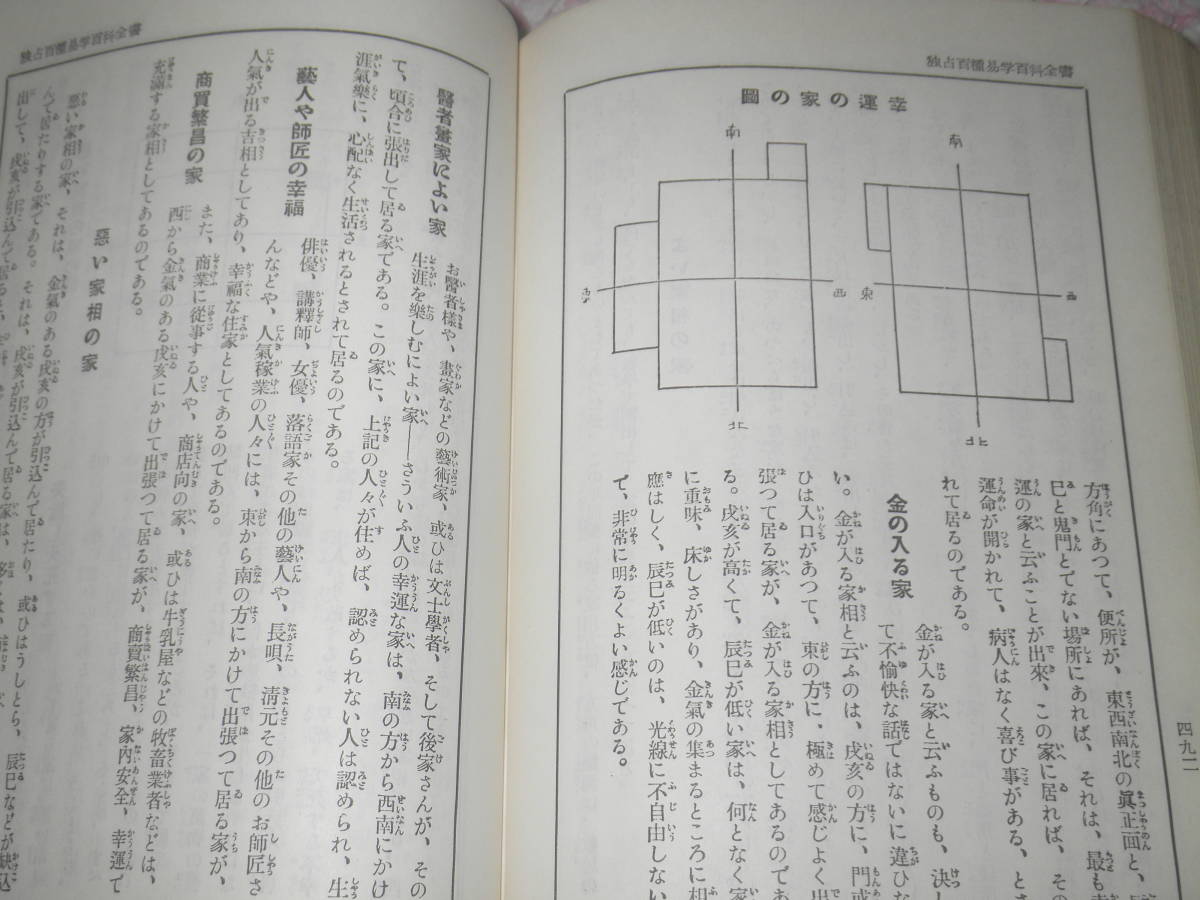 独占百種易学百科全書
幸運の家の圖
南
西
東
北
南
西
北
方角にあつて、便所が、東西南北の眞正面と、
巳と鬼門とでない場所にあれば、それは、最も
運の家と云ふことが出來、この家に居れば、その
運命が開かれて、病人はなく喜び事がある、とさ
れて居るのである。
金の入る家
金が入る家と云ふものも、決し
て不愉快な話ではないに違ひな
い。金が入る家相と云ふのは、戌亥の方に、門或
ひは入口があつて、東の方に、極めて感じよく出
張つて居る家が、金が入る家相としてあるのであ
る。戌亥が高くて、辰巳が低い家は、何となく家
に重味、床しさがあり、金氣の集まるところに相
應はしく、辰巳が低いのは、光線に不自由しない
で、非常に明るくよい感じである。
四九二
独占百種易学百科全書
醫者畫家によい家
お醫者様や、畫家などの藝術家、或ひは文士學者、そして後家さんが、その
生涯を樂しむによい家――さういふ人の幸運な家は、南の方から西南にかけ
て、頃合に張出して居る家である。この家に、上記の人々が住めば、認められない人は認められ、生
涯氣樂に、心配なく生活されるとされて居るのである。
藝人や師匠の幸福
俳優、講釋師、女優、落語家その他の藝人や、長唄、淸元その他のお師匠さ
んなどや、人氣稼業の人々には、東から南の方にかけて出張つて居る家が、
人氣が出る吉相としてあり、幸福な住家としてあるのである。
商買繁昌の家
また、商業に從事する人や、商店向の家、或ひは牛乳屋などの牧畜業者などは、
西から金氣のある戌亥にかけて出張つて居る家が、商賣繁昌、家內安全、幸運で
充滿する家相としてあるのである。
惡い家相の家
惡い家相の家、それは、金氣のある戌亥の方が引込んで居たり、或ひはうしとら、辰巳などが缺込
んで居たりする家である。それは、戌亥が引込んで居る家は、
出して、戌亥が引込んで居ると、